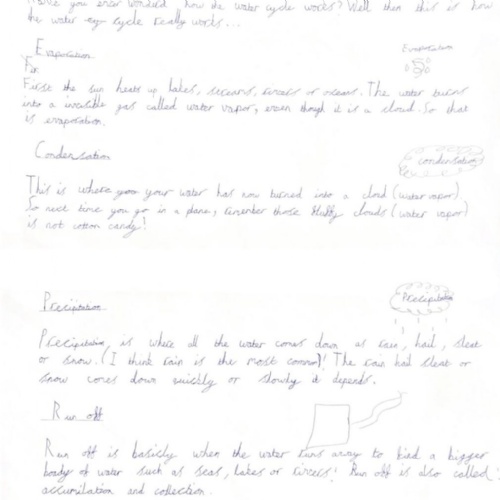 Have you ever wondered how the water cycle works? Well then this is how
the water cycle really works...
Evaporation
Evaporation
For
First the sun heats up lakes, streams, rivers or oceans. The water turns
into a invisible gas called water vapor, even though it is a cloud. So that
is evaporation.
Condensation
condensation
This is where your water has now turned into a cloud (water vapor)
So next time you go in a plane, remember those fluffy clouds (water vapor)
is not cotton candy!
Precipitation
Precipitation
Precipitation is where all the water comes down as rain, hail, sleat
or snow. (I think rain is the most common)! The rain hail sleat or
snow comes down quickly or slowly it depends.
Run off
Run off is basicly when the water runs away to find a bigger
body of water such as seas, lakes or rivers! Run off is also called
accumilation and collection.